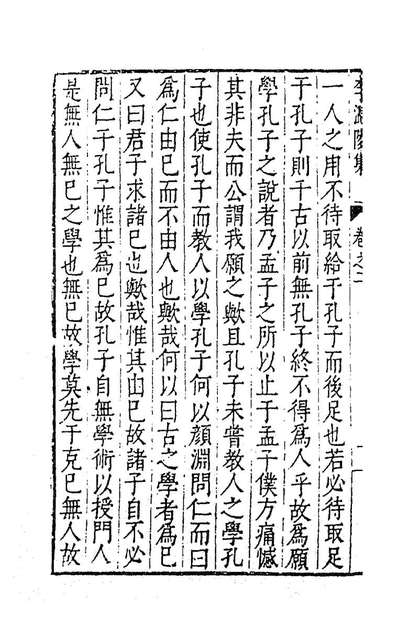 李溫陵集 卷之二
一人之用不待取給于孔子而後足也若必待取足
于孔子則千古以前無孔子終不得為人乎故為願
學孔子之說者乃孟子之所以止于孟子僕方痛憾
其非夫而公謂我願之歟且孔子未嘗教人之學孔
子也使孔子而教人以學孔子何以顏淵問仁而曰
為仁由己而不由人也歟哉何以曰古之學者為己
又曰君子求諸己也歟哉惟其由己故諸子自不必
問仁于孔子惟其為己故孔子自無學術以授門人
是無人無己之學也無己故學莫先于克己無人故